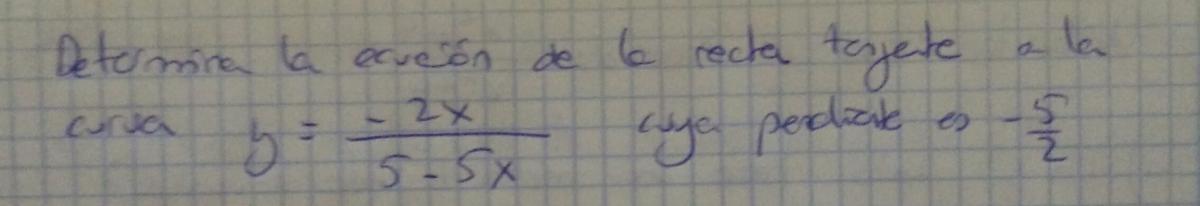 Determina la ecuación de la recta tangente a la
curva y = \frac{-2x}{5-5x} cuya pendiente es -\frac{5}{2}